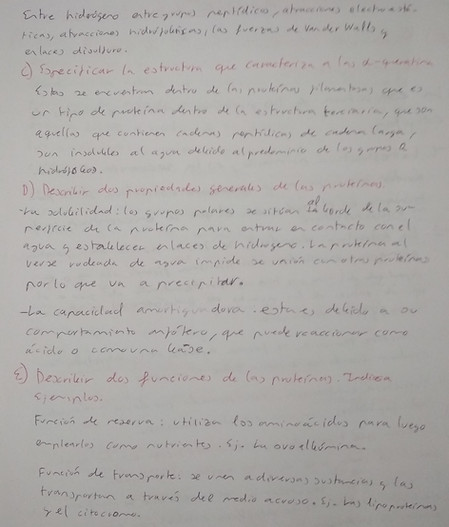 Entre hidrógeno entre grupos peptídicos, atracciones electrostá-
ticas, atracciones hidrofóbicas, las fuerzas de Van der Walls y
enlaces disulfuro.
C) Especificar la estructura que caracteriza a las α-queratina
Estas se encuentran dentro de las proteínas filamentosas que es
un tipo de proteína dentro de la estructura terciaria, que son
aquellas que contienen cadenas peptídicas de cadena larga,
son insolubles al agua debido al predominio de los grupos R
hidrófobos.
D) Describir dos propiedades generales de las proteínas
-La solubilidad: los grupos polares se sitúan al borde de la su-
perficie de la proteína para entrar en contacto con el
agua y establecer enlaces de hidrógeno. La proteína al
verse rodeada de agua impide se unión con otras proteínas
por lo que va a precipitar.
-La capacidad amortiguadora. esta es debido a su
comportamiento anfótero, que puede reaccionar como
ácido o como una base.
E) Describir dos funciones de las proteínas. Indica
Ejemplos.
Función de reserva: utilizan los aminoácidos para luego
emplearlos como nutrientes. Ej. La ovoalbúmina.
Función de transporte: se unen a diversas sustancias y las
transportan a través del medio acuoso. Ej. Las lipoproteínas
y el citocromo.